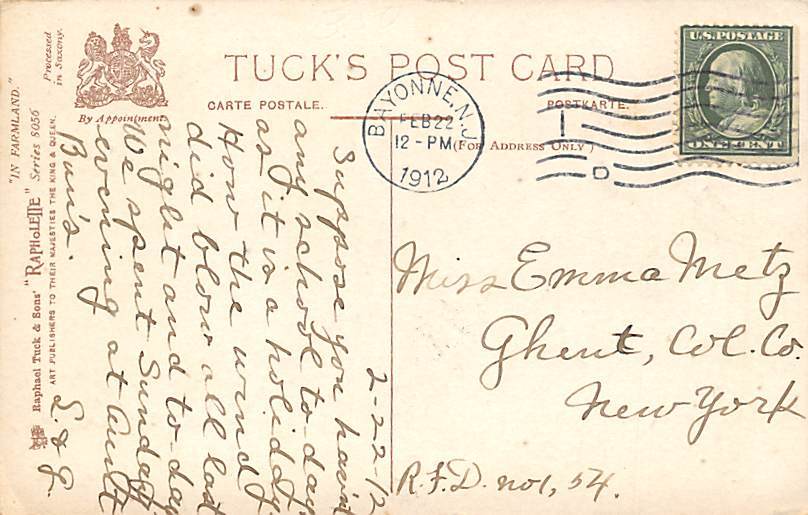 TUCK'S POST CARD
CARTE POSTALE.
POSTKARTE.
(For Address Only)
By Appointment
"IN FARMLAND."
Processed
in Saxony.
Raphael Tuck & Sons' "RAPHOLETTE" Series 8056
ART PUBLISHERS TO THEIR MAJESTIES THE KING & QUEEN.
BAYONNE, N.J.
FEB 22
12-PM
1912
U.S. POSTAGE
ONE CENT
2-22-12
Suppose you havint
any school to-day
as it is a holiday.
How the wind
did blow all last
night and to-day
We spent Sunday
evening at Aunt
Miss Emma Metz
Ghent, Col. Co.
New York
R.F.D. no1, 54.